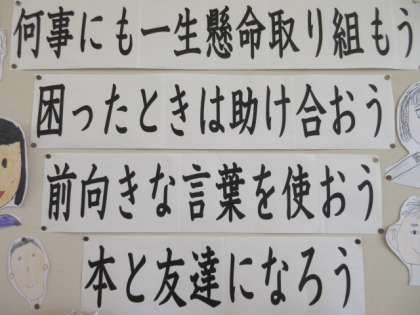 何事にも一生懸命取り組もう
困ったときは助け合おう
前向きな言葉を使おう
本と友達になろう